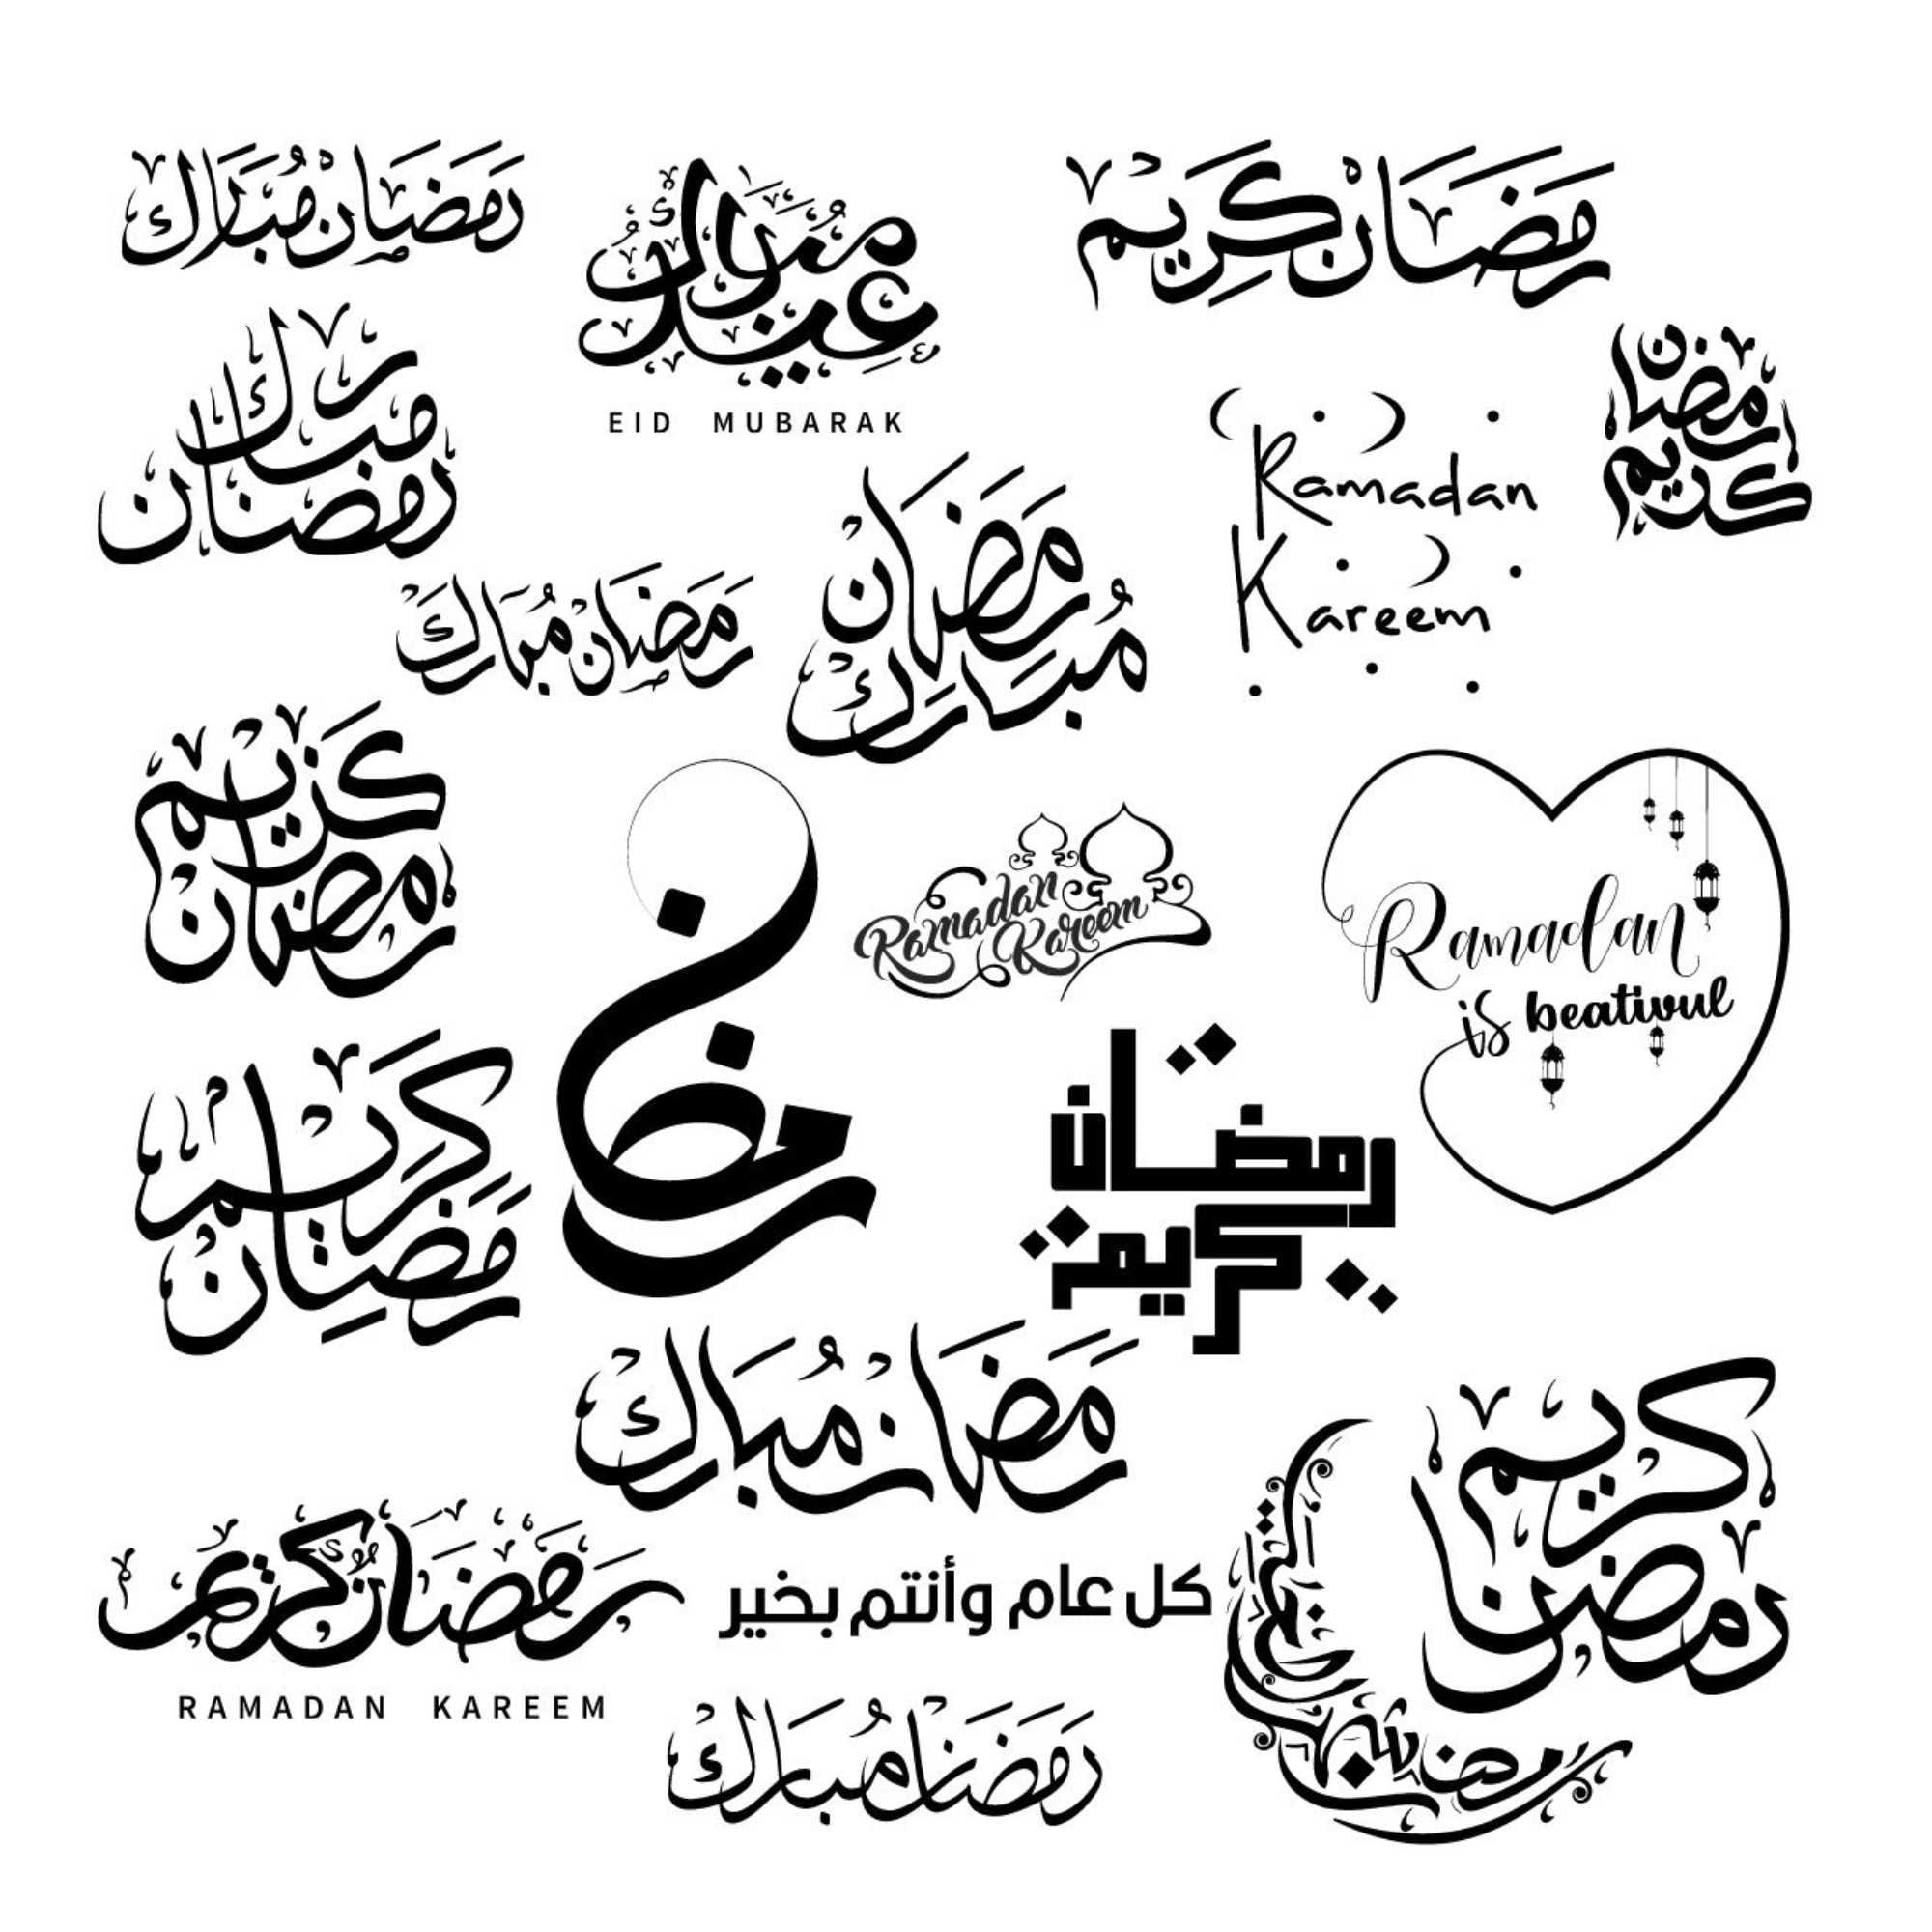 رمضان مبارك
عيد مبارك
EID MUBARAK
رمضان كريم
رمضان
مبارك
رمضان
كريم
Ramadan
Kareem
رمضان
مبارك
رمضان مبارك
كريم
رمضان
رمضان
Ramadan
Kareem
Ramadan
is beativul
كريم
رمضان
رمضان
كريم
رمضان مبارك
كريم
رمضان
رمضان كريم
RAMADAN KAREEM
كل عام وأنتم بخير
رمضان مبارك